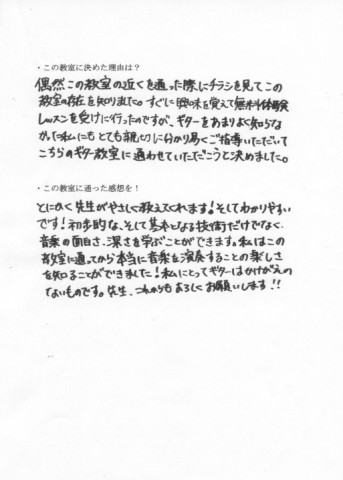 ・この教室に決めた理由は？
偶然この教室の近くを通った際にチラシを見てこの
教室の存在を知りました。すぐに興味を覚えて無料体験
レッスンを受けに行ったのですが、ギターをあまりよく知らな
かった私にもとても親切に分かり易くご指導いただいて
こちらのギター教室に通わせていただこうと決めました。
・この教室に通った感想を！
とにかく先生がやさしく教えてくれます！そしてわかりやすい
です！初歩的な、そして基本となる技術だけでなく、
音楽の面白さ、深さを学ぶことができます。私はこの
教室に通ってから本当に音楽を演奏することの楽しさ
を知ることができました！私にとってギターはかけがえの
ないものです。先生、これからもよろしくお願いします！！